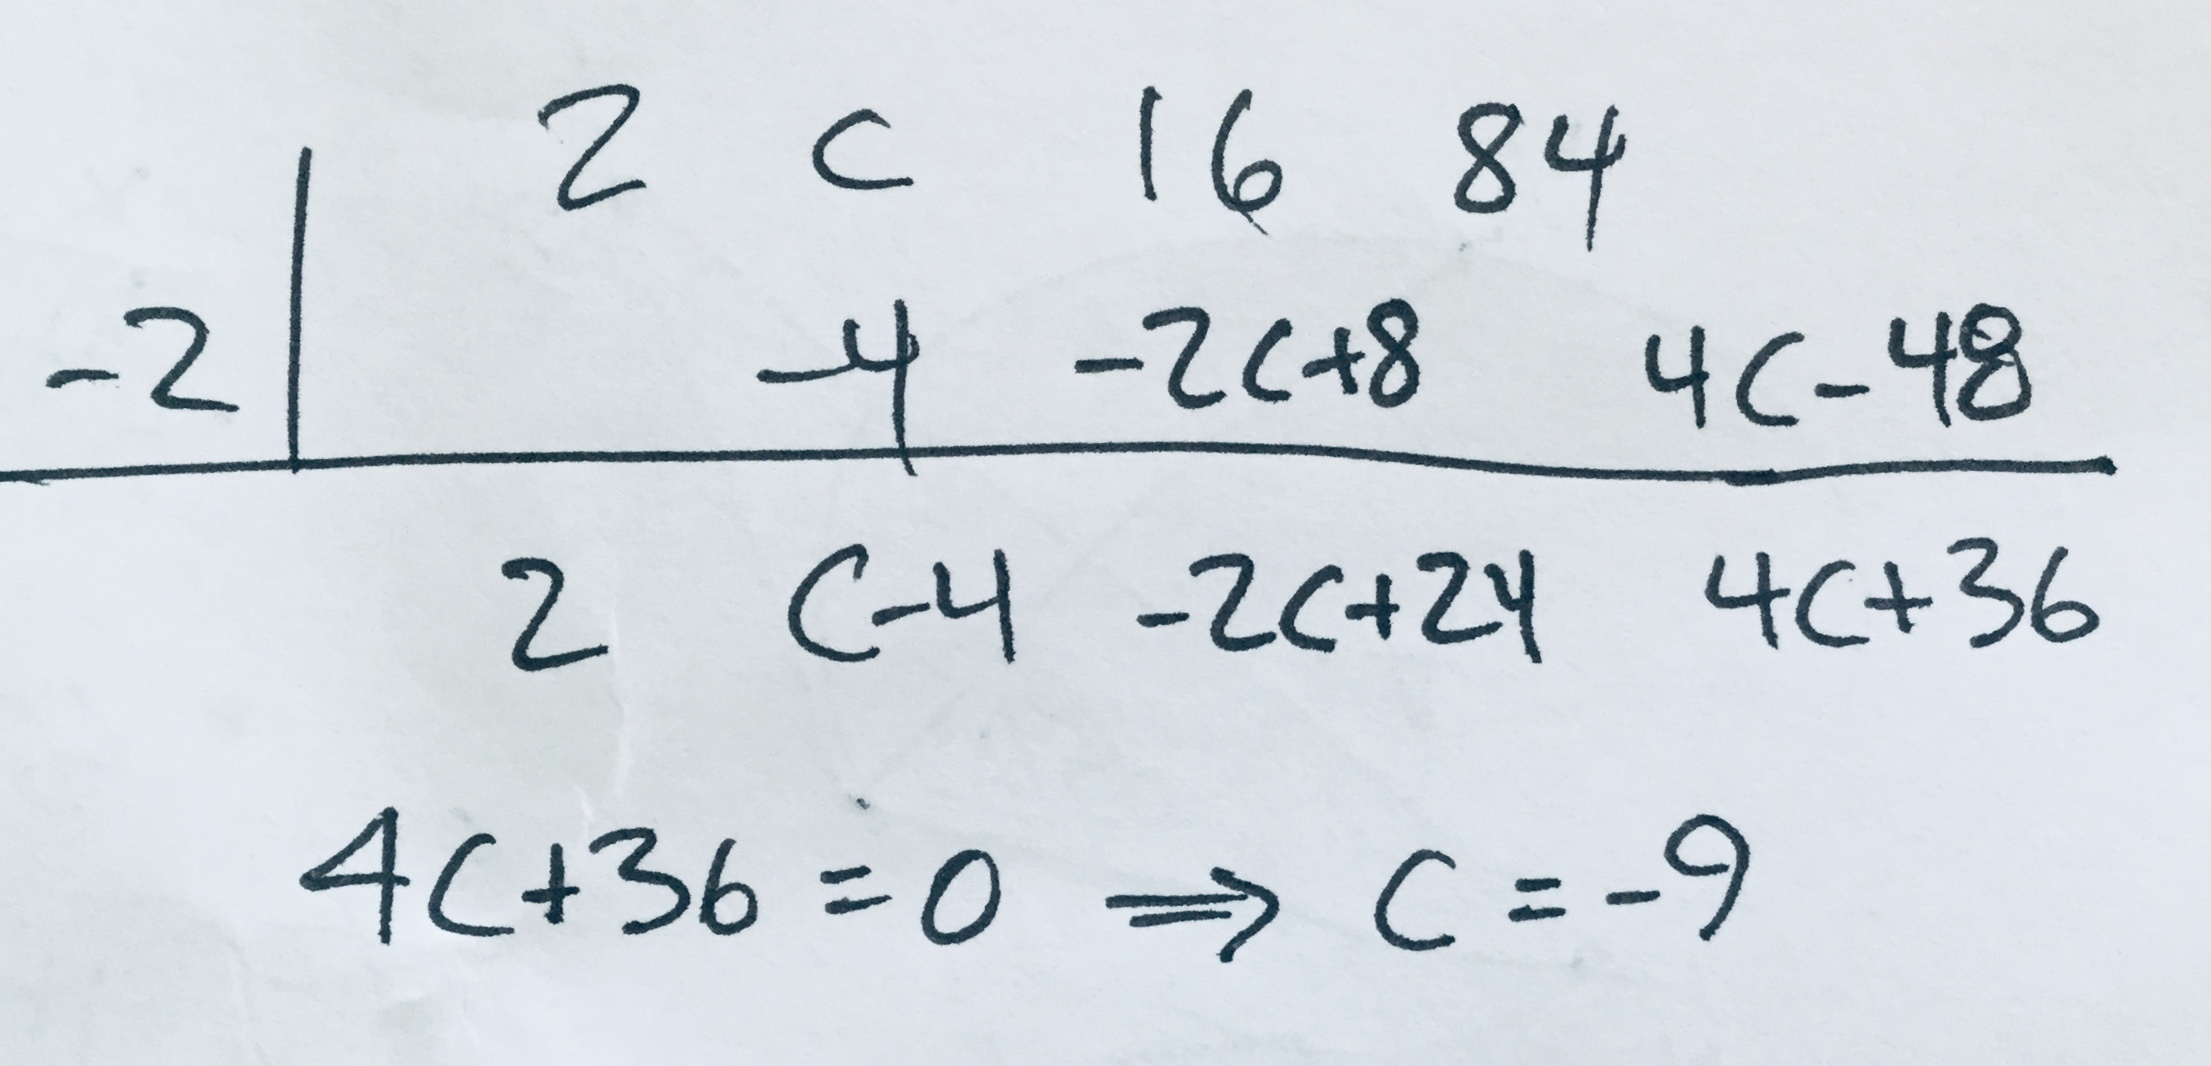 2 c 16 84
-2 -4 -2c+8 4c-48
2 c-4 -2c+24 4c+36
4c+36=0 ⟹ c=-9